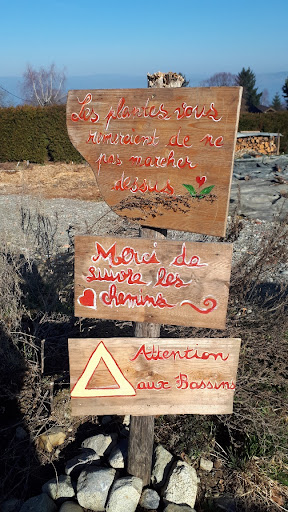 Les plantes vous
remercient de ne
pas marcher
dessus
Merci de
suivre les
chemins
Attention
aux Bassins